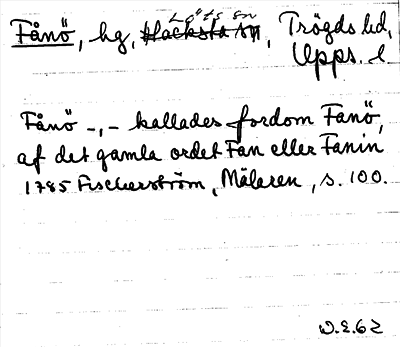 Löts sn
Fånö, hg, Hacksta sn, Trögds hd,
Upps. l
Fånö -,- kallades fordom Fanö,
af det gamla ordet Fan eller Fanin
1785 Fischerström, Mälaren, s. 100.
D.E.62